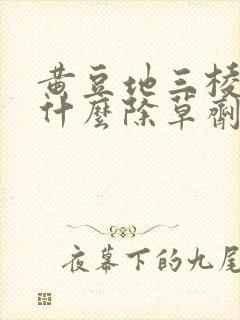 黄豆地三棱
什麼除草劑
夜幕下的九尾